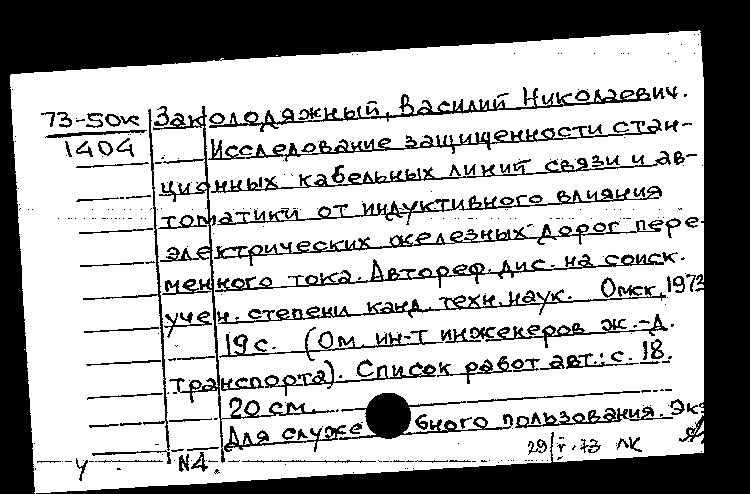 73-50к Заколодяжный, Василий Николаевич.
1404 Исследование защищенности стан-
ционных кабельных линий связи и ав-
томатики от индуктивного влияния
электрических железных дорог пере-
менного тока. Автореф. дис. на соиск.
учен. степени канд. техн. наук. Омск, 1973
19 с. (Ом. ин-т инженеров ж.-д.
транспорта). Список работ авт.: с. 18.
20 см.
Для служебного пользования. Экз
У N4. 29/V-73 ЛК